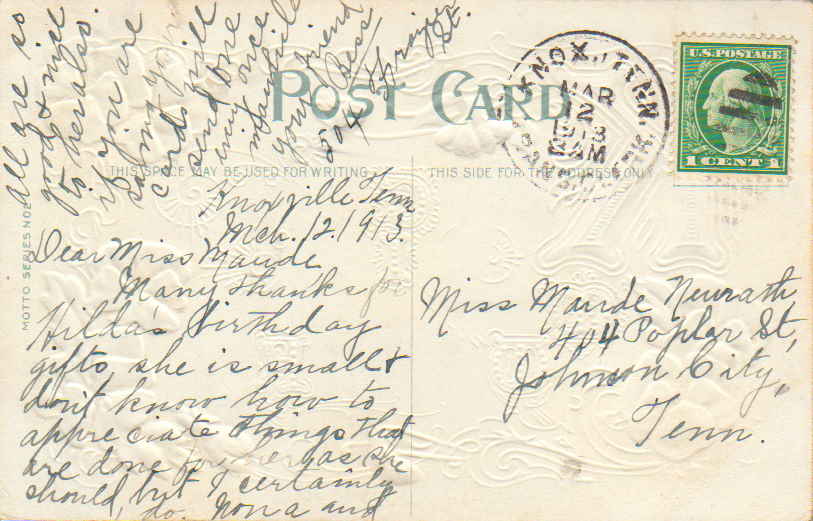 POST CARD
THIS SPACE MAY BE USED FOR WRITING
THIS SIDE FOR THE ADDRESS ONLY
MOTTO SERIES NO 2
KNOX., TENN.
MAR
12
1913
AM
U.S. POSTAGE
1 CENT 1
Knoxville Tenn
Mch. 12. 1913.
Dear Miss Maude
Many thanks for
Hildas birthday
gifts, she is small &
dont know how to
appreciate things that
are done for her as she
should, but I certainly
do. Nona and
All are so
good & nice
to her also.
If you are
saving your
cards will
send one
once
in a while
your friend
Bess
604
St.
Miss Maude Neurath,
404 Poplar St,
Johnson City,
Tenn.